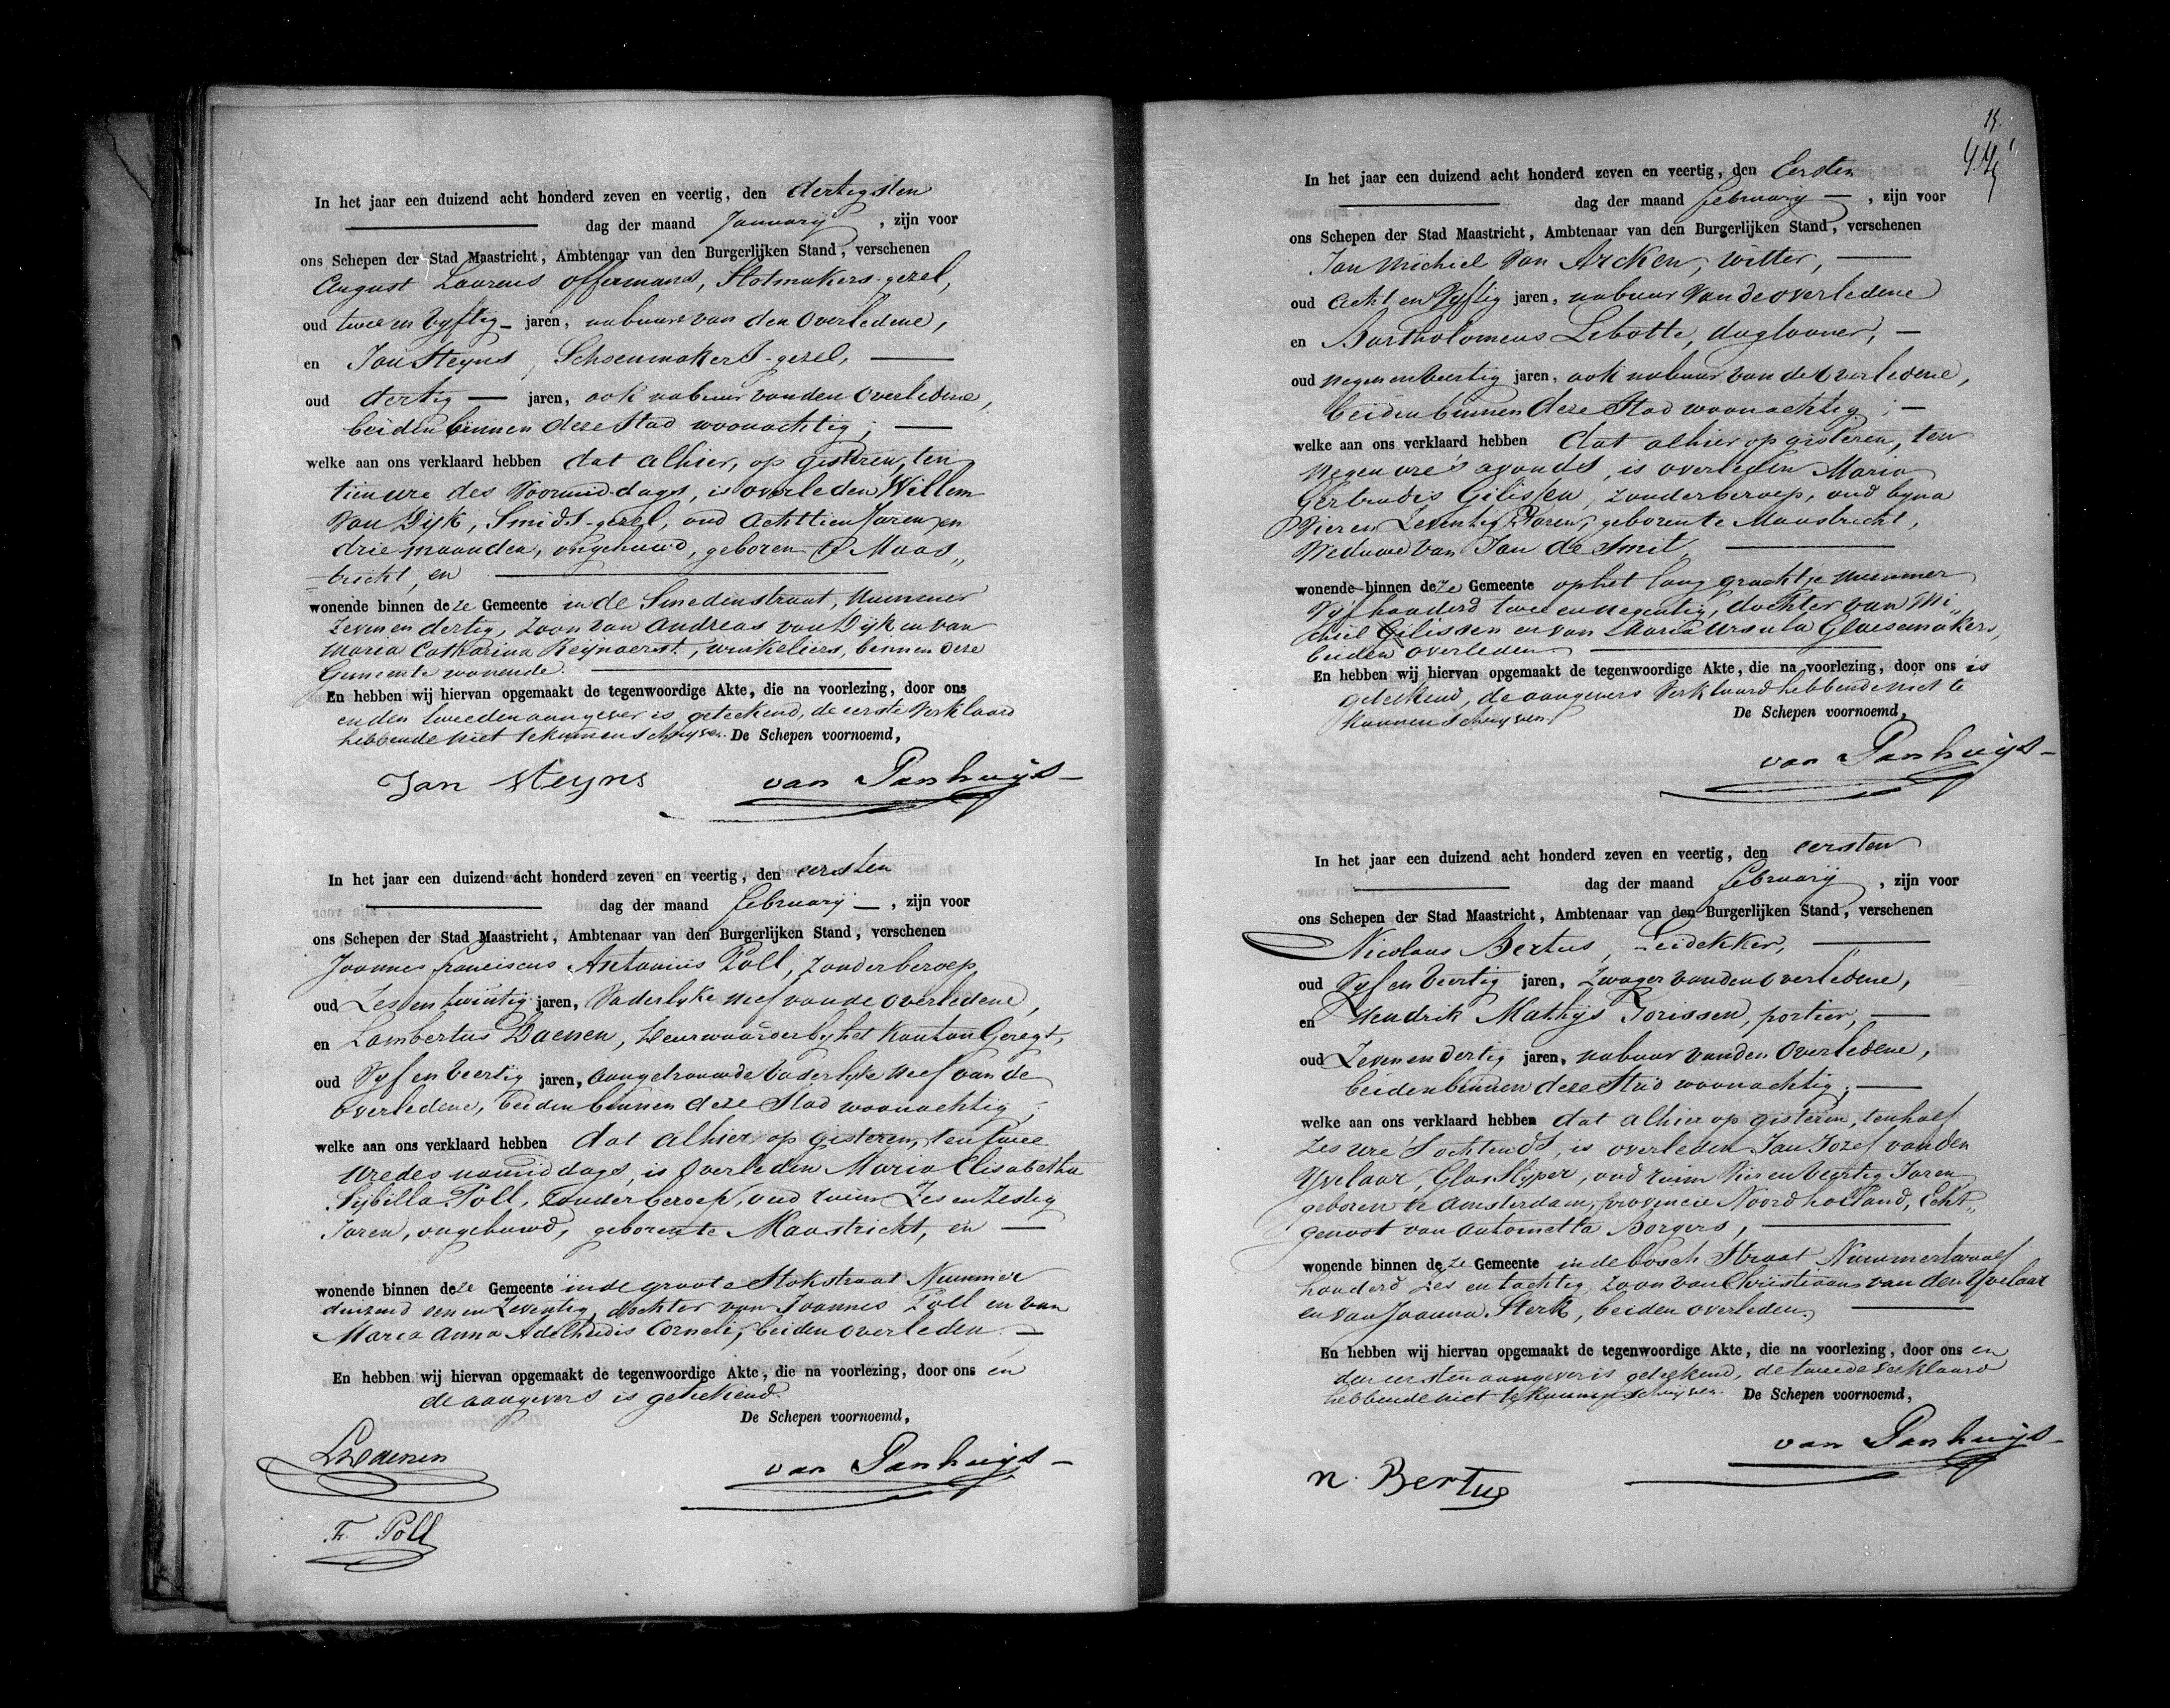 In het jaar een duizend acht honderd zeven en veertig, den dertigsten
dag der maand Januarij , zijn voor
ons Schepen der Stad Maastricht, Ambtenaar van den Burgerlijken Stand, verschenen
August Laurens Offermans, Slotmakers-gezel,
oud twee en Vyftig jaren, nabuur van den Overledene,
en Jan Steyns, Schoenmakers-gezel,
oud dertig jaren, ook nabuur van den Overledene,
beiden binnen deze Stad woonachtig;
welke aan ons verklaard hebben dat alhier, op gisteren, ten
tien ure des Voormiddags, is overleden Willem
Van Dijk, Smids-gezel, oud achttien Jaren en
drie maanden, ongehuwd, geboren te Maas„
=tricht, en
wonende binnen deze Gemeente in de Smedenstraat, Nummer
Zeven en dertig, Zoon van Andreas van Dijk en van
Maria Catharina Reijnaerst, winkeliers, binnen deze
Gemeente wonende.
En hebben wij hiervan opgemaakt de tegenwoordige Akte, die na voorlezing, door ons
en den tweeden aangever is geteekend, de eerste Verklaard
hebbende niet te kunnen schryven. De Schepen voornoemd,
Jan Steyns van Panhuijs
In het jaar een duizend acht honderd zeven en veertig, den eersten
dag der maand februarij , zijn voor
ons Schepen der Stad Maastricht, Ambtenaar van den Burgerlijken Stand, verschenen
Joannes franciscus Antonius Poll, zonder beroep,
oud Zes en twintig jaren, Vaderlyke Neef van de overledene,
en Lambertus Daenen, Deurwaarder by het Kanton Geregt,
oud Vyf en Veertig jaren, aangetrouwde Vaderlyke Neef van de
overledene, beiden binnen deze Stad woonachtig;
welke aan ons verklaard hebben dat alhier op gisteren, ten twee
ure des namiddags, is Overleden Maria Elisabetha
Sybilla Poll, zonder beroep, oud ruim Zes en Zestig
Jaren, ongehuwd, geboren te Maastricht, en
wonende binnen deze Gemeente in de groote Stokstraat Nummer
duizend een en Zeventig, dochter van Joannes Poll en van
Maria Anna Adelheidis Corneli, beiden overleden.
En hebben wij hiervan opgemaakt de tegenwoordige Akte, die na voorlezing, door ons en
de aangevers is geteekend.
De Schepen voornoemd,
L Daenen van Panhuijs
F. Poll
In het jaar een duizend acht honderd zeven en veertig, den Eersten
dag der maand februarij , zijn voor
ons Schepen der Stad Maastricht, Ambtenaar van den Burgerlijken Stand, verschenen
Jan Michiel Van Arcken, witter,
oud acht en Vyftig jaren, nabuur Van de overledene
en Bartholomeus Lebotte, daglooner,
oud Negen en Veertig jaren, ook nabuur van de Overledene,
beiden binnen deze Stad woonachtig;
welke aan ons verklaard hebben dat alhier op gisteren, ten
Negen ure 's avonds, is overleden Maria
Gertrudis Gilissen, zonder beroep, oud byna
Vier en Zeventig Jaren, geboren te Maastricht,
Weduwe Van Jan de Smit,
wonende binnen deze Gemeente op het lang grachtje Nummer
Vyf honderd twee en negentig, dochter van Mi„
chiel Gilissen en van Maria Ursula Glaesemakers,
beiden overleden.
En hebben wij hiervan opgemaakt de tegenwoordige Akte, die na voorlezing, door ons is
geteekend, de aangevers Verklaard hebbende niet te
kunnen schryven. De Schepen voornoemd,
van Panhuijs
In het jaar een duizend acht honderd zeven en veertig, den eersten
dag der maand februarij , zijn voor
ons Schepen der Stad Maastricht, Ambtenaar van den Burgerlijken Stand, verschenen
Nicolaus Bertus, Leidekker,
oud Vyf en Veertig jaren, Zwager van den Overledene,
en Hendrik Mathys Jorissen, portier,
oud Zeven en dertig jaren, nabuur van den Overledene,
beiden binnen deze Stad woonachtig;
welke aan ons verklaard hebben dat alhier op gisteren, ten half
Zes ure 's ochtends, is overleden Jan Jozef van den
Yvelaar, Glas Slyper, oud ruim Vier en Veertig Jaren
geboren te Amsterdam, provincie Noord holland, Echt„
genoot van Antonetta Borgers,
wonende binnen deze Gemeente in de bosch Straat Nummer twaalf
honderd Zes en tachtig, Zoon van Christiaan van den Yvelaar
en van Joanna Sterk, beiden overleden.
En hebben wij hiervan opgemaakt de tegenwoordige Akte, die na voorlezing, door ons en
den eersten aangever is geteekend, de tweede verklaard
hebbende niet te kunnen schryven. De Schepen voornoemd,
van Panhuijs
n. Bertus